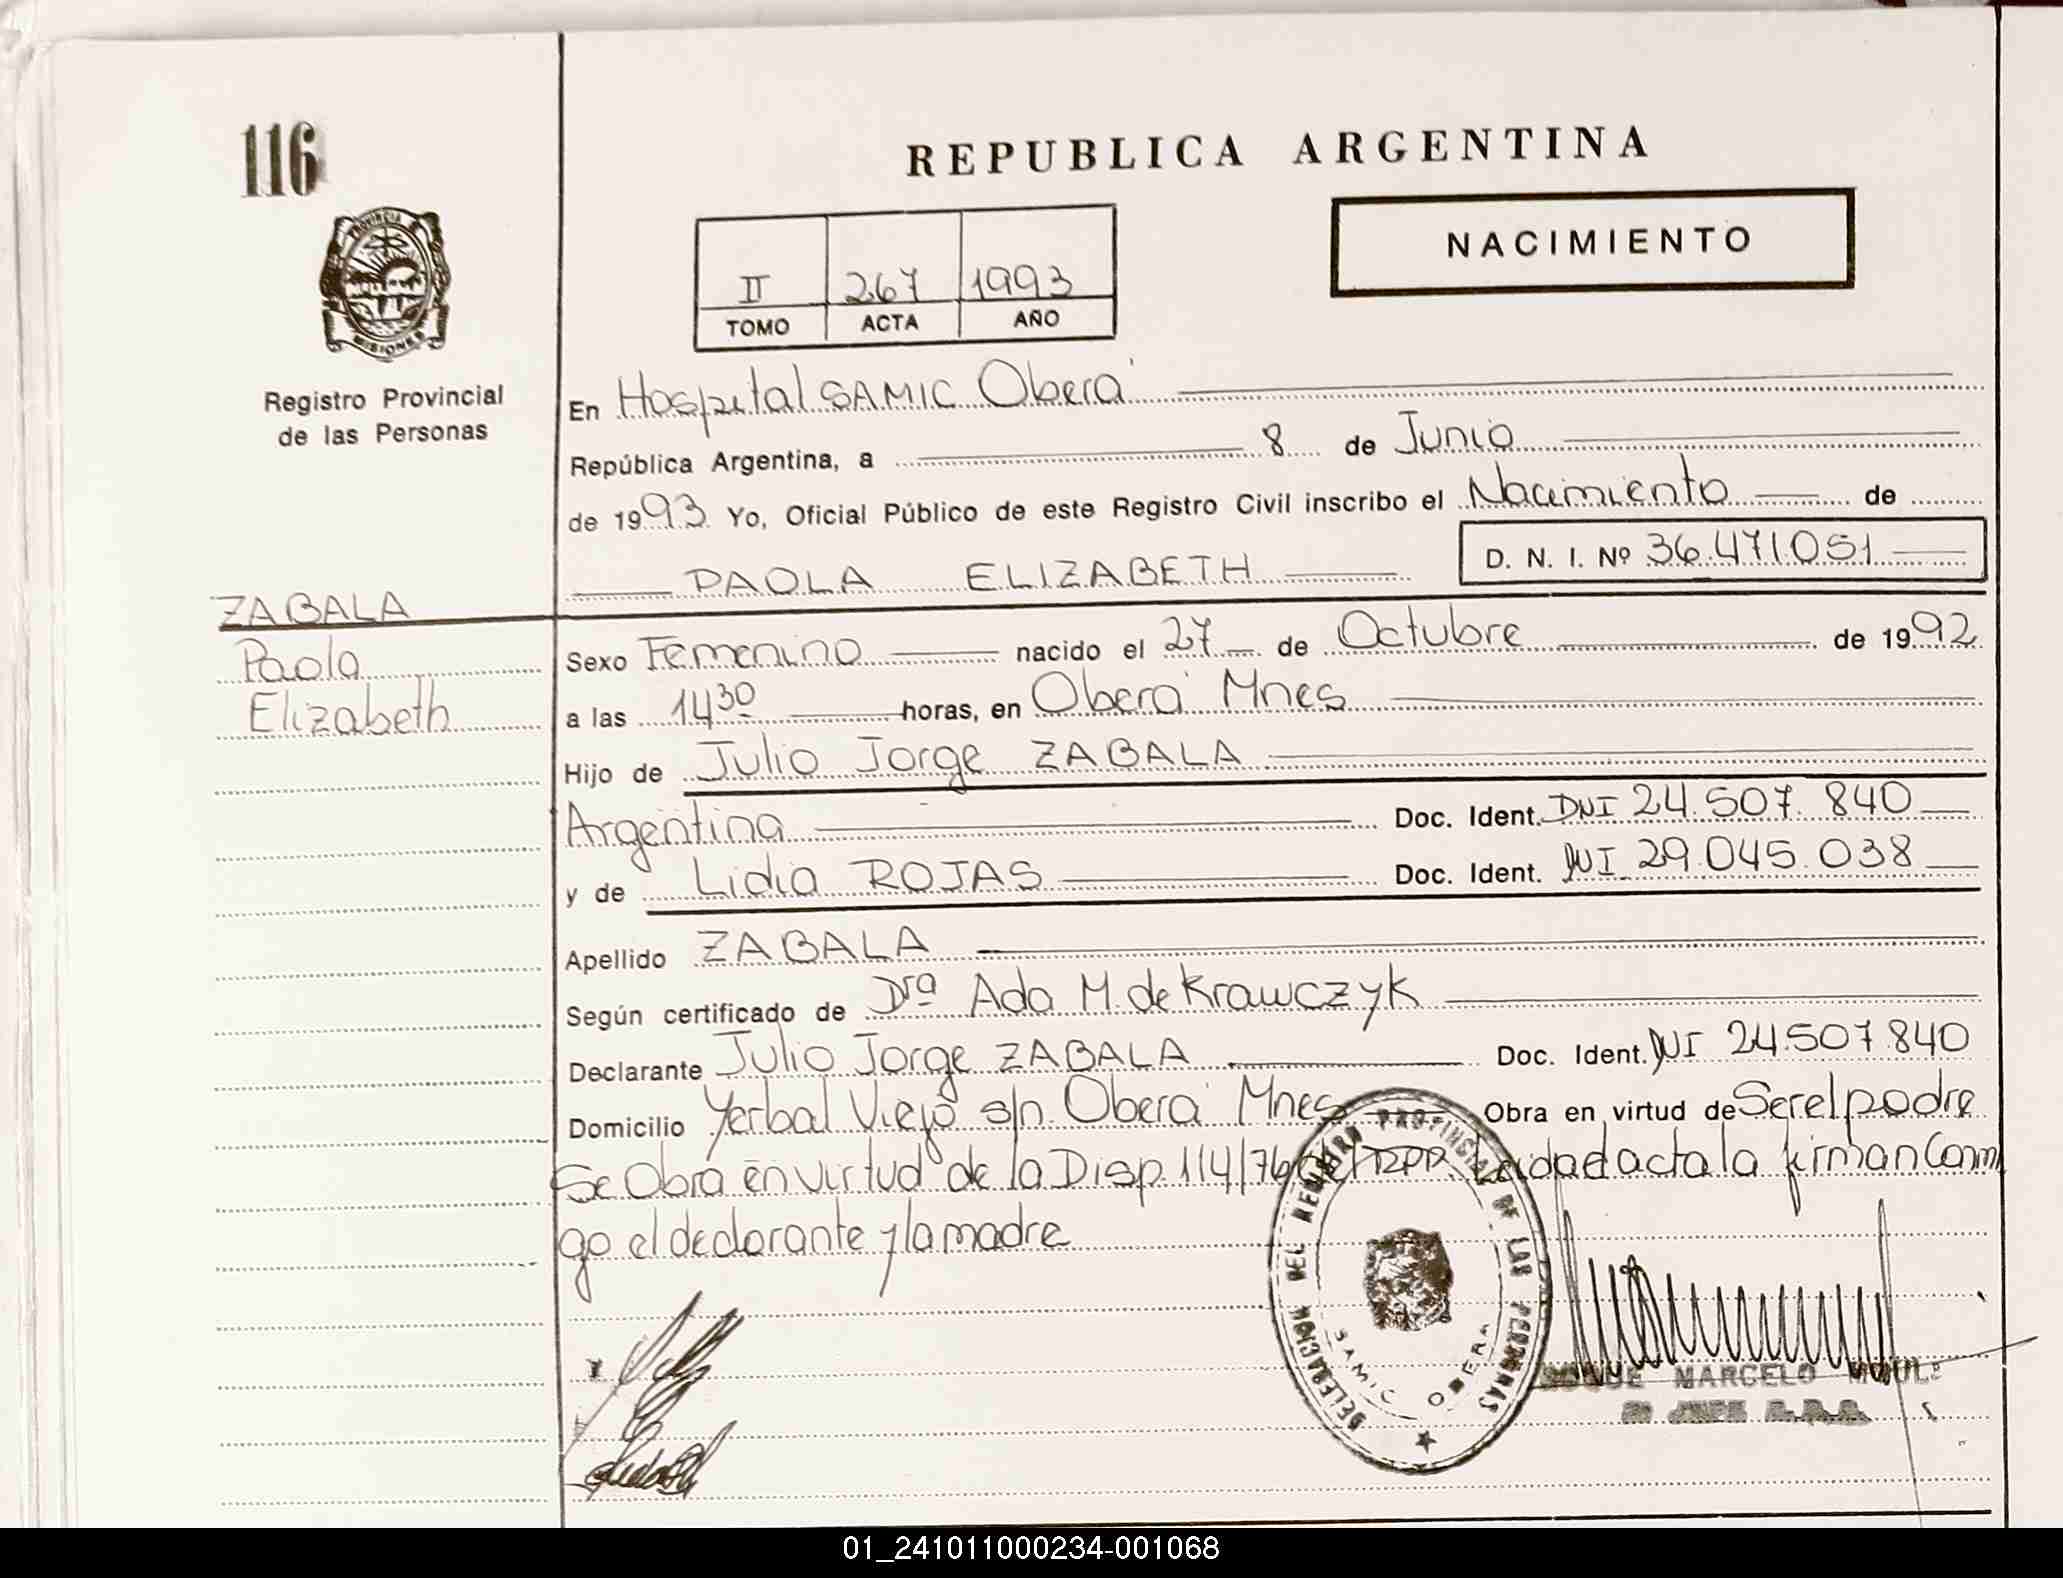 116
REPUBLICA ARGENTINA
NACIMIENTO
II 267 1993
TOMO ACTA AÑO
PROVINCIA
MISIONES
Registro Provincial
de las Personas
En Hospital SAMIC Oberá
República Argentina, a 8 de Junio
de 1993 Yo, Oficial Público de este Registro Civil inscribo el Nacimiento de
PAOLA ELIZABETH D. N. I. Nº 36.471.051
ZABALA
Paola
Elizabeth
Sexo Femenino nacido el 27 de Octubre de 1992
a las 14 30 horas, en Oberá Mnes
Hijo de Julio Jorge ZABALA
Argentina Doc. Ident. DNI 24.507.840
y de Lidia ROJAS Doc. Ident. DNI 29.045.038
Apellido ZABALA
Según certificado de Dra Ada M. de Krawczyk
Declarante Julio Jorge ZABALA Doc. Ident. DNI 24.507.840
Domicilio Yerbal Viejo s/n Oberá Mnes Obra en virtud de Ser el padre
Se Obra en virtud de la Disp. 114/76 Leida el acta la firman Conmi
go el declarante y la madre
DELEGACION DEL REGISTRO PROVINCIAL DE LAS PERSONAS
SAMIC OBERA
MARCELO
01_241011000234-001068